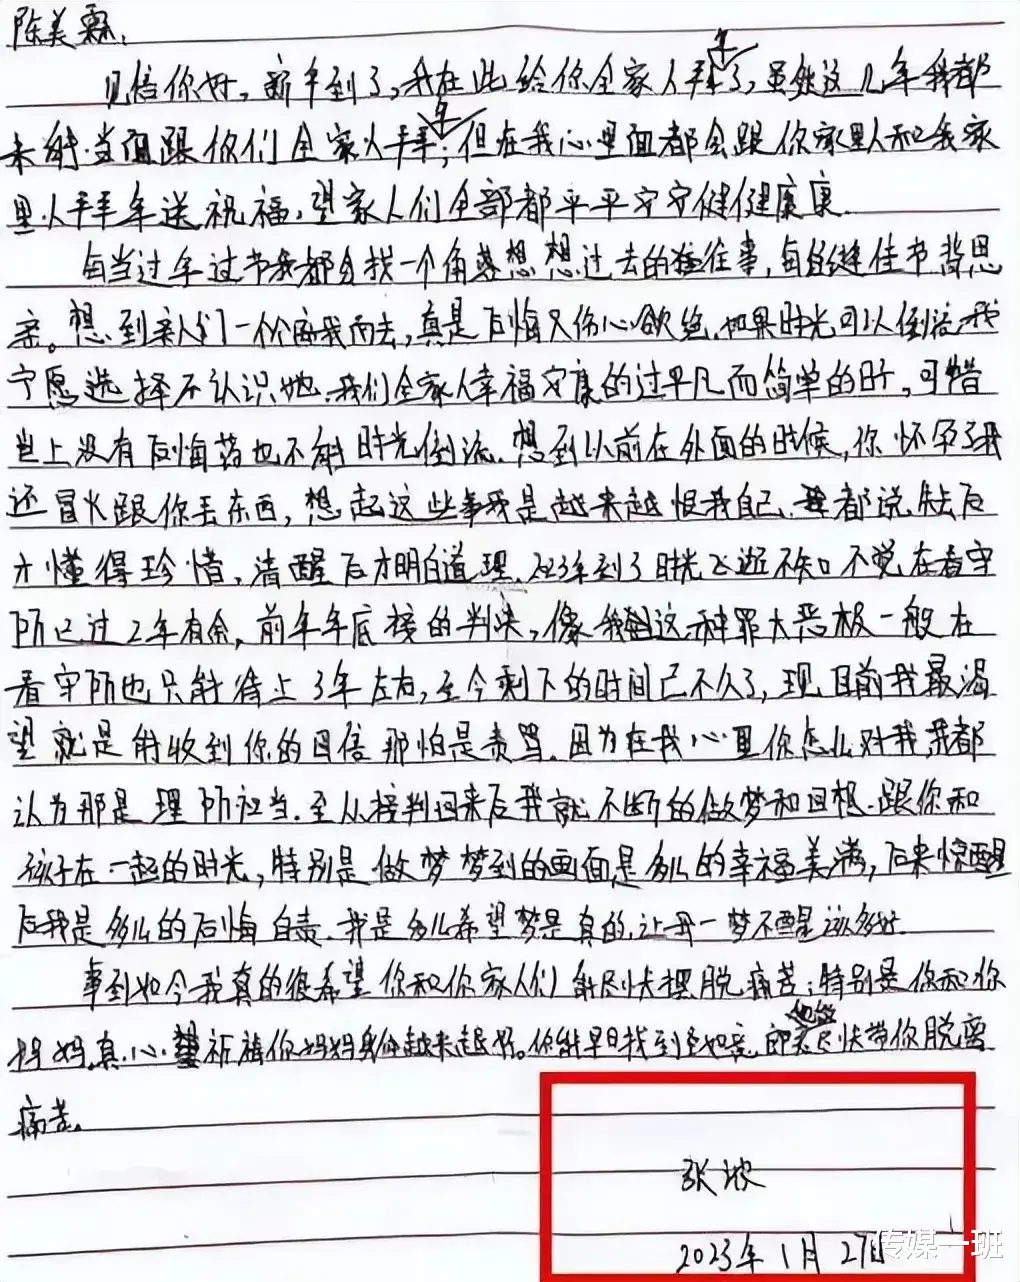 陈美霖：
见信你好，新年到了，我在此给你全家人拜年了，虽然这几年我都
未能当面跟你们全家人拜年，但在我心里面都会跟你家里人和我家
里人拜年送祝福，望家人们全部都平平安安健健康康
每当过年过节我都会找一个角落想想过去的往事，每逢佳节倍思
亲。想到亲人们一个个离我而去，真是后悔又伤心欲绝，如果时光可以倒流，我
宁愿选择不认识她，我们全家人幸福安康的过平凡而简单的日子，可惜
世上没有后悔药也不能时光倒流，想到以前在外面的时候，你怀孕了我
还冒火跟你丢东西，想起这些事我是越来越恨我自己，都说失去后
才懂得珍惜，清醒后才明白道理，时光飞逝不知不觉在看守
所已过2年有余，前年年底接的判决，像我这种罪大恶极一般在
看守所也只能待上3年左右，至今剩下的时间已不久了，现目前我最渴
望就是能收到你的回信那怕是责骂，因为在我心里你怎么对我我都
认为那是理所应当，至从接判回来后我就不断的做梦和回想，跟你和
孩子在一起的时光，特别是做梦梦到的画面是多么的幸福美满，后来惊醒
后我是多么的后悔自责，我是多么希望梦是真的，让我一梦不醒该多好
事到如今我真的很希望你和你家人们能尽快摆脱痛苦；特别是你和你
妈妈，真心祈祷你妈妈身体越来越好。你能早日找到 尽快带你脱离
痛苦。
张波
2023年1月27日
传媒一班